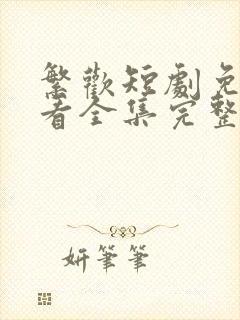 繁歡短劇免
看全集完整
妍筆筆